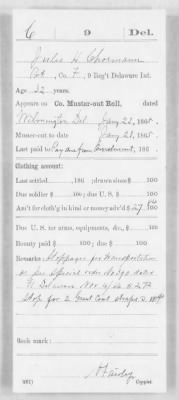 6 9 Del.
Julius H. Chormann
Pvt, Co. F, 9 Reg't Delaware Inf.
Age 22 years.
Appears on Co. Muster-out Roll, dated
Wilmington Del Jany 23, 1865.
Muster-out to date Jany 23, 1865.
Last paid to Pay due from Enrolment, 186
Clothing account:
Last settled, 186 ; drawn since $ 100
Due soldier $ 100; due U. S. $ 100
Am't for cloth'g in kind or money adv'd $ 27. 100
Due U. S. for arms, equipments, &c., $ 100
Bounty paid $ 100; due $ 100
Remarks: Stoppages for Transportation
as per Special order No 90 dated
Ft Delaware Nov
Stop for 2 Great Coat straps
Book mark:
(361) Copyist.